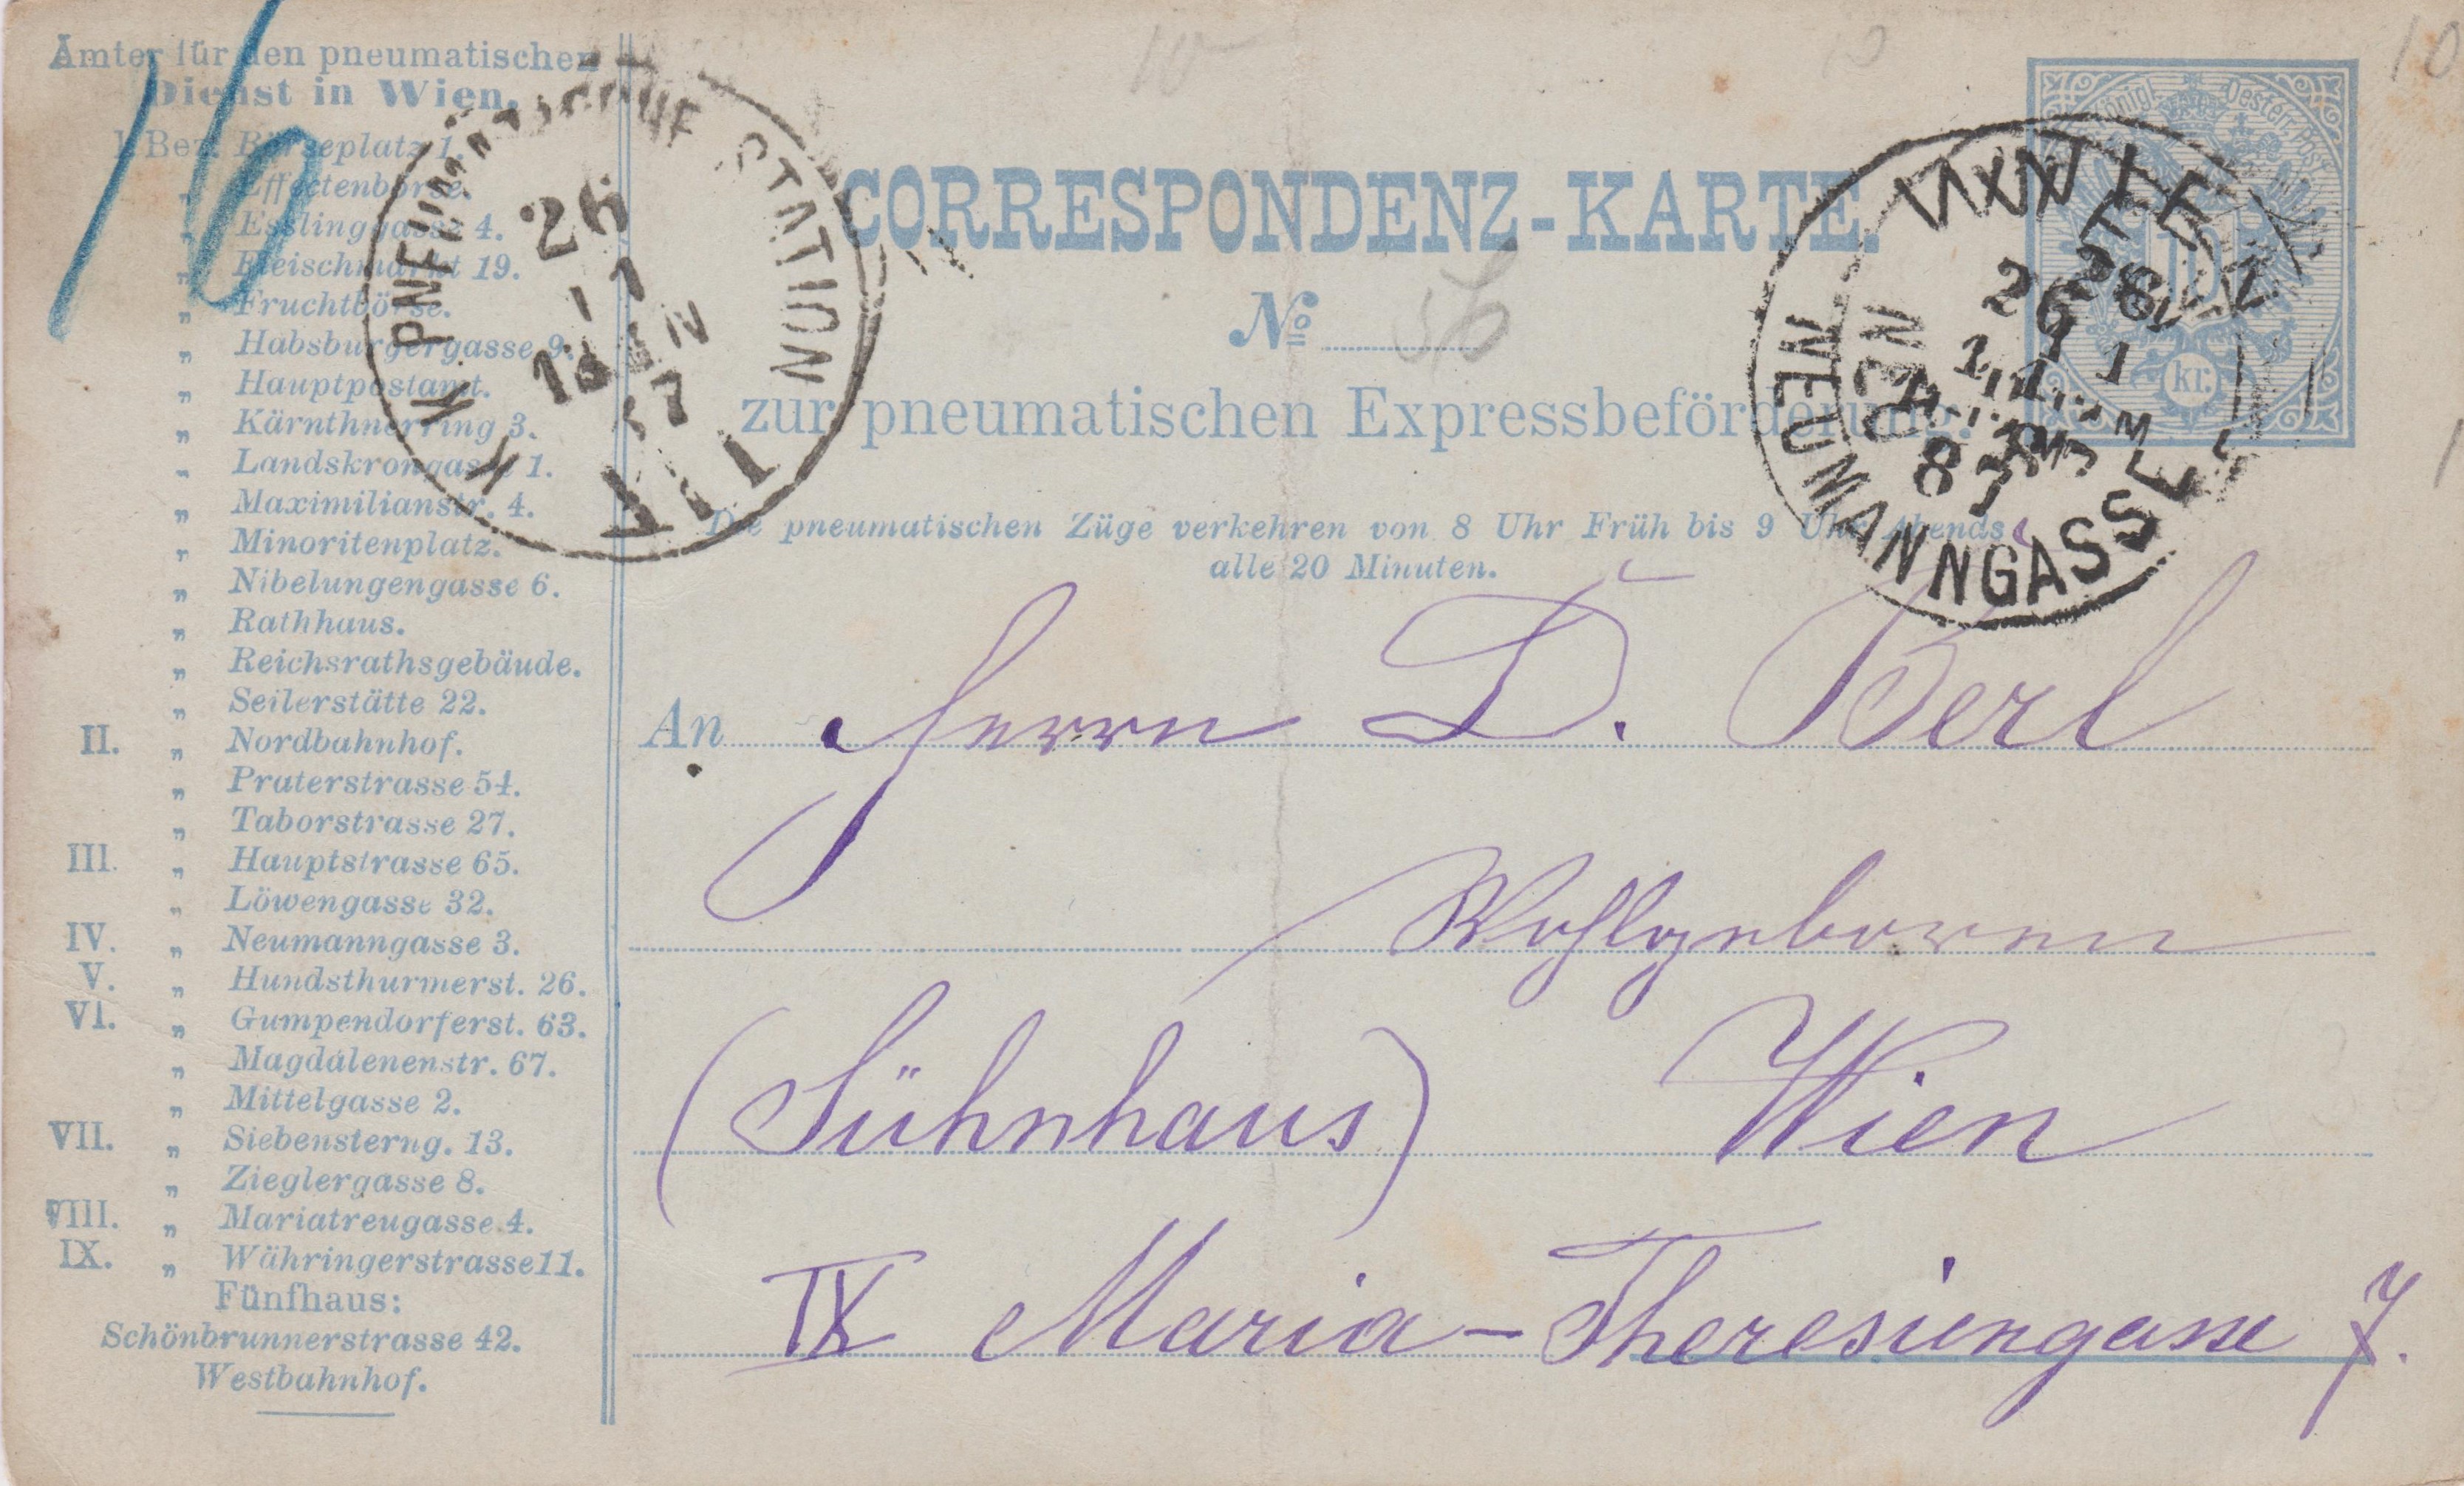 Ämter für den pneumatischen
Dienst in Wien.
I. Bez. Börseplatz 1.
„ Effectenbörse.
„ Esslinggasse 4.
„ Fleischmarkt 19.
„ Fruchtbörse.
„ Habsburgergasse 9.
„ Hauptpostamt.
„ Kärnthnerring 3.
„ Landskrongasse 1.
„ Maximilianstr. 4.
„ Minoritenplatz.
„ Nibelungengasse 6.
„ Rathhaus.
„ Reichsrathsgebäude.
„ Seilerstätte 22.
II. „ Nordbahnhof.
„ Praterstrasse 54.
„ Taborstrasse 27.
III. „ Hauptstrasse 65.
„ Löwengasse 32.
IV. „ Neumanngasse 3.
V. „ Hundsthurmerst. 26.
VI. „ Gumpendorferst. 63.
„ Magdalenenstr. 67.
„ Mittelgasse 2.
VII. „ Siebensterng. 13.
„ Zieglergasse 8.
VIII. „ Mariatreugasse 4.
IX. „ Währingerstrasse 11.
Fünfhaus:
Schönbrunnerstrasse 42.
Westbahnhof.
16
K. K. PNEUMATISCHE STATION
26
1
87
10
10
10
CORRESPONDENZ-KARTE.
No 56
zur pneumatischen Expressbeförderung.
Die pneumatischen Züge verkehren von 8 Uhr Früh bis 9 Uhr Abends
alle 20 Minuten.
kr.
WIEN
NEUMANNGASSE
26
1
87
An Herrn D. Berl
Wohlgeboren
(Sühnhaus) Wien
IX Maria-Theresiengasse 7.